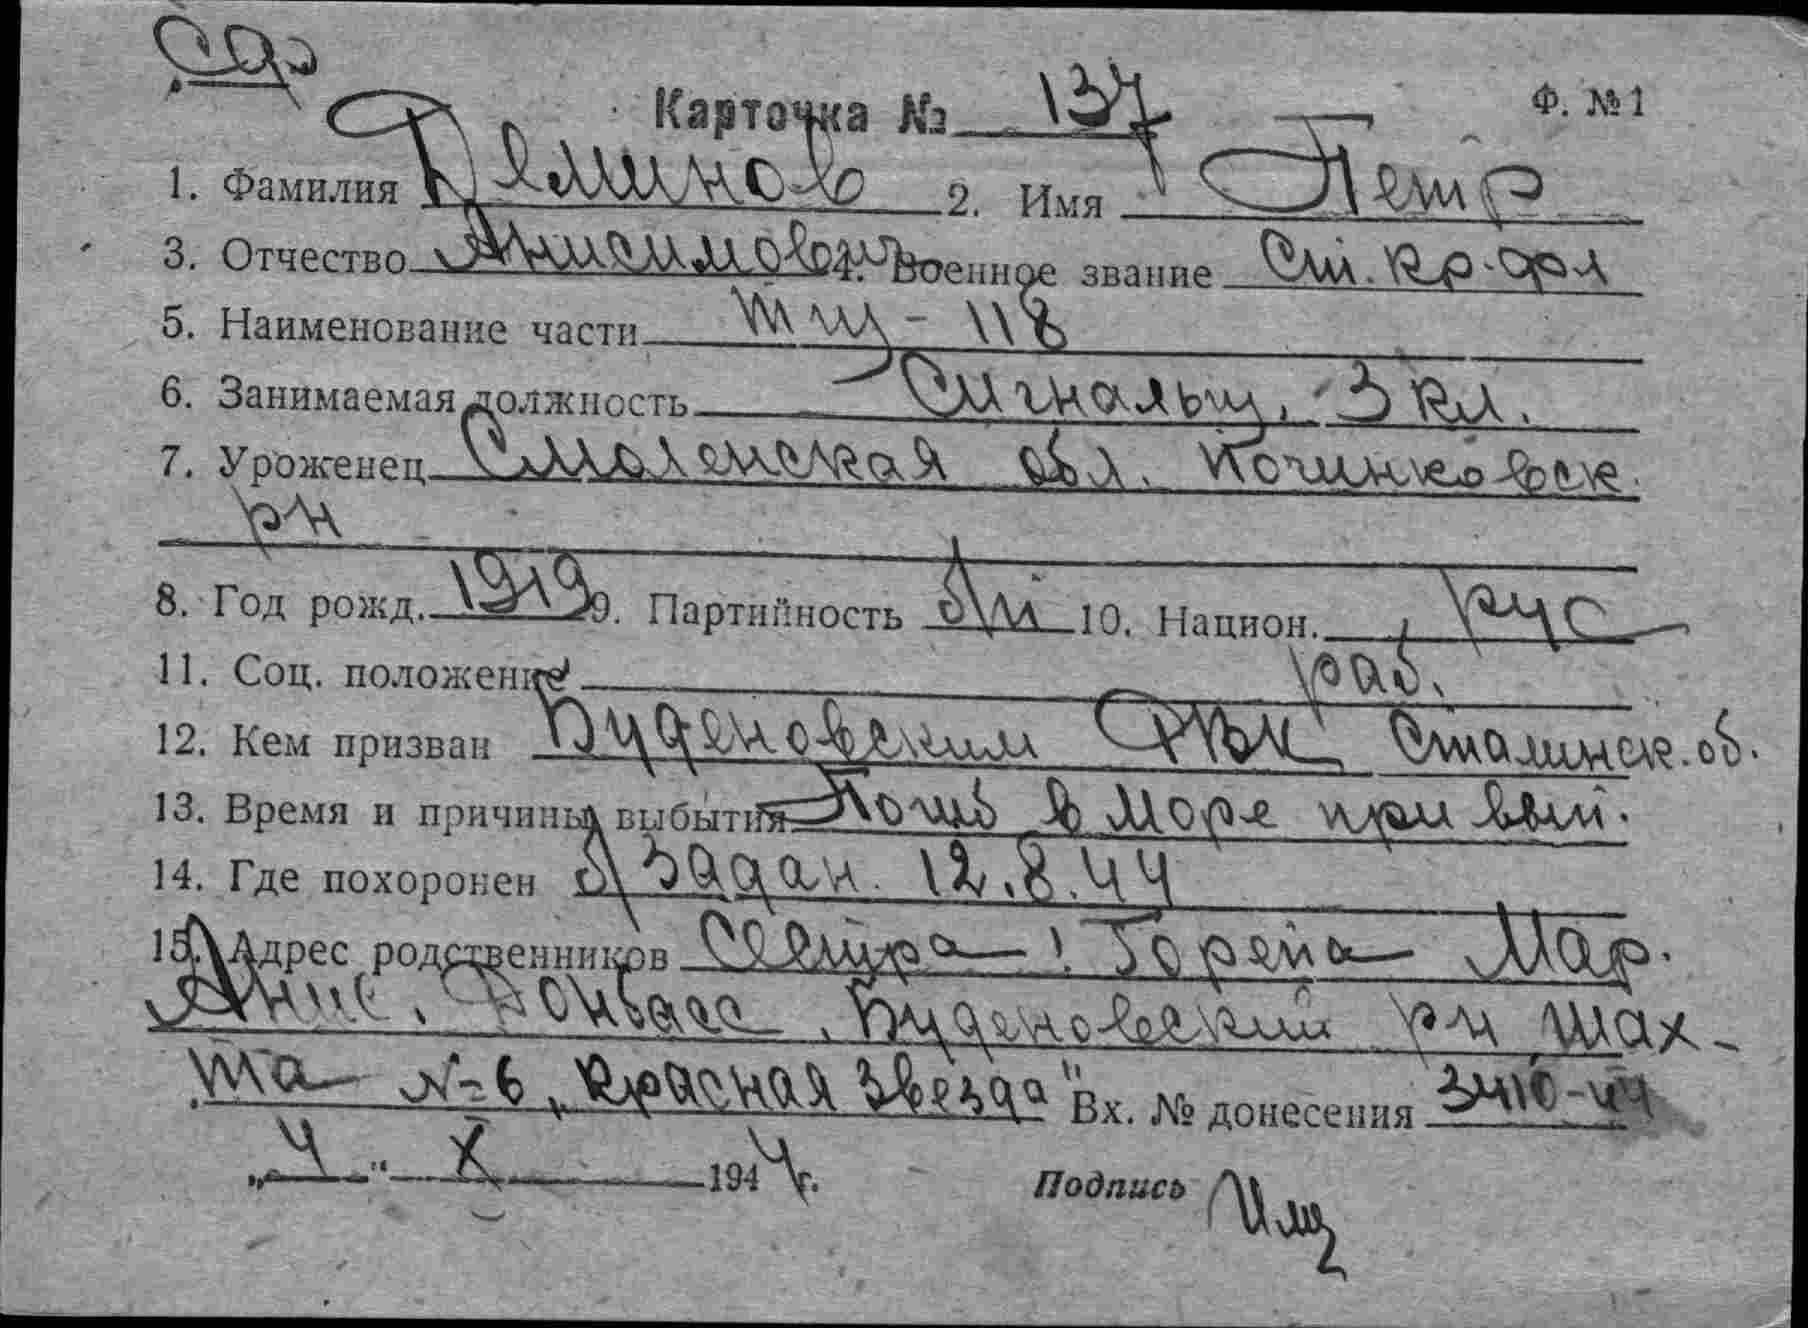 Карточка № 137 Ф. № 1
1. Фамилия Деминов 2. Имя Петр
3. Отчество Анисимович 4. Военное звание Ст. кр-фл
5. Наименование части тщ - 118
6. Занимаемая должность Сигнальщ. 3 кл.
7. Уроженец Смоленская обл. Починковск.
рн
8. Год рожд. 1919 9. Партийность б/п 10. Национ. рус
11. Соц. положение раб.
12. Кем призван Буденовским РВК Сталинск. об.
13. Время и причины выбытия Погиб в море при вып.
14. Где похоронен б/задан. 12.8.44
15. Адрес родственников Сестра Мар.
Анис. Донбасс, Буденовский рн шах-
та № 6 „Красная Звезда" Вх. № донесения 3410-44
„4" X 1944 г. Подпись